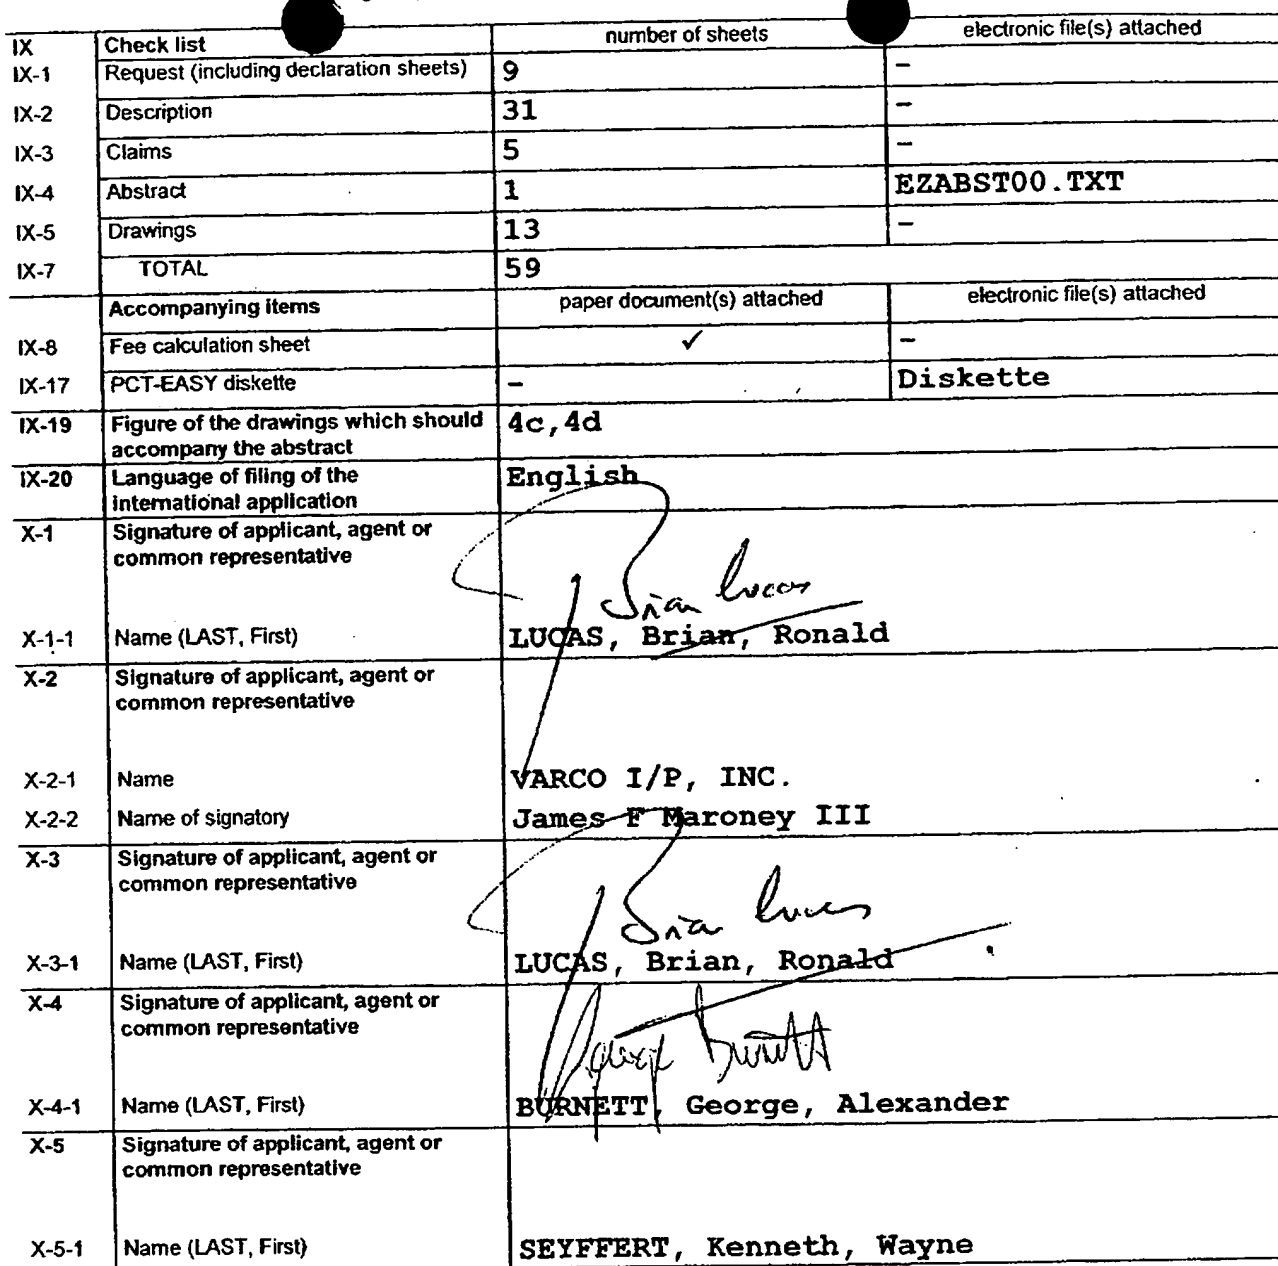 IX Check list number of sheets electronic file(s) attached
IX-1 Request (including declaration sheets) 9 -
IX-2 Description 31 -
IX-3 Claims 5 -
IX-4 Abstract 1 EZABST00.TXT
IX-5 Drawings 13 -
IX-7 TOTAL 59
Accompanying items paper document(s) attached electronic file(s) attached
IX-8 Fee calculation sheet ✓ -
IX-17 PCT-EASY diskette - Diskette
IX-19 Figure of the drawings which should 4c,4d
accompany the abstract
IX-20 Language of filing of the English
international application
X-1 Signature of applicant, agent or
common representative
Brian Lucas
X-1-1 Name (LAST, First) LUCAS, Brian, Ronald
X-2 Signature of applicant, agent or
common representative
X-2-1 Name VARCO I/P, INC.
X-2-2 Name of signatory James F Maroney III
X-3 Signature of applicant, agent or
common representative
Brian Lucas
X-3-1 Name (LAST, First) LUCAS, Brian, Ronald
X-4 Signature of applicant, agent or
common representative
George Burnett
X-4-1 Name (LAST, First) BURNETT, George, Alexander
X-5 Signature of applicant, agent or
common representative
X-5-1 Name (LAST, First) SEYFFERT, Kenneth, Wayne